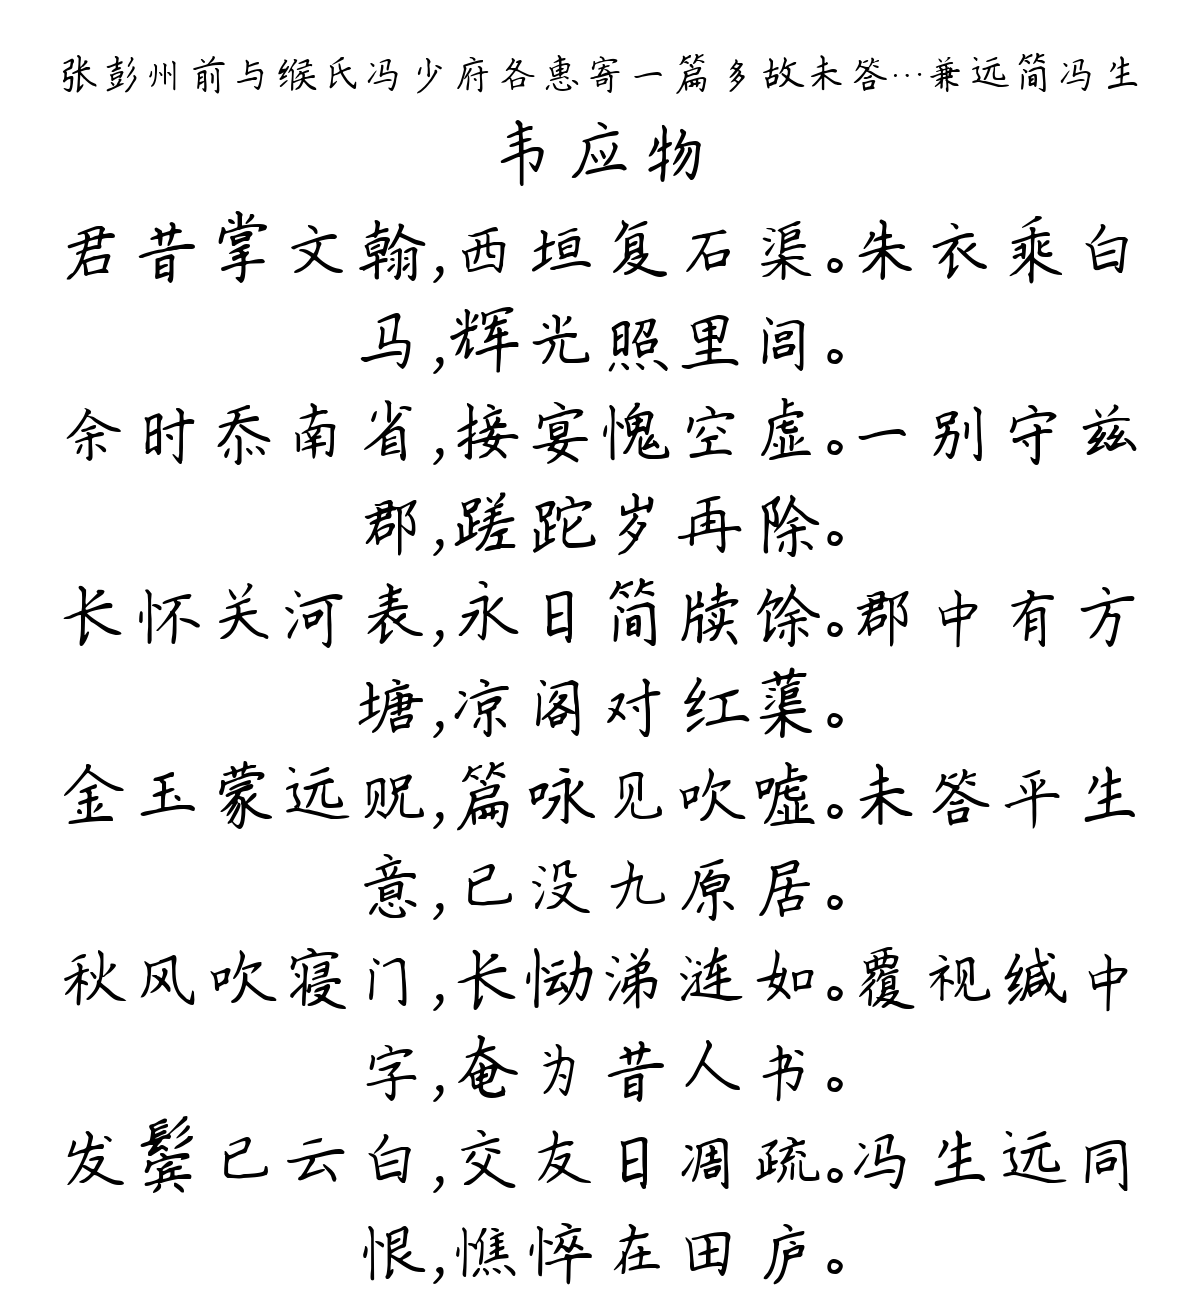 张彭州前与缑氏冯少府各惠寄一篇多故未答…兼远简冯生
韦应物
君昔掌文翰,西垣复石渠。朱衣乘白
马,辉光照里闾。
余时忝南省,接宴愧空虚。一别守兹
郡,蹉跎岁再除。
长怀关河表,永日简牍馀。郡中有方
塘,凉阁对红蕖。
金玉蒙远贶,篇咏见吹嘘。未答平生
意,已没九原居。
秋风吹寝门,长恸涕涟如。覆视缄中
字,奄为昔人书。
发鬓已云白,交友日凋疏。冯生远同
恨,憔悴在田庐。